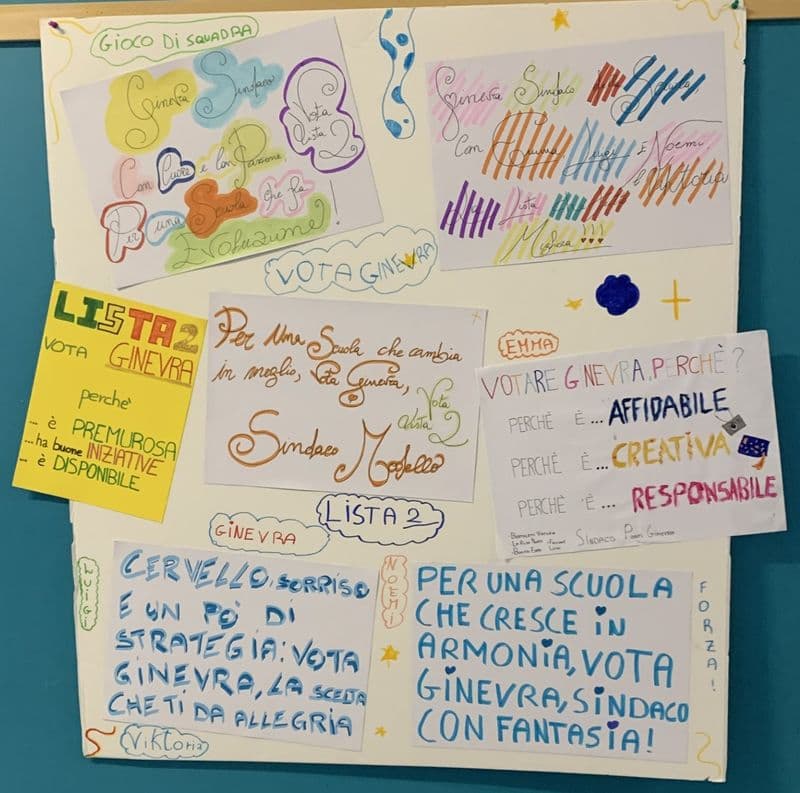 GIOCO DI SQUADRA
Ginevra Sindaco
Vota
lista
2
Con Cuore e con Passione,
Per una Scuola che fa
Evoluzione!
Ginevra Sindaco
Con Emma Luigi E Noemi
e Viktoria
Lista
Migliora !!!
VOTA GINEVRA
LISTA 2
VOTA GINEVRA
perchè
... è PREMUROSA
...ha buone INIZIATIVE
... è DISPONIBILE
Per una Scuola che cambia
in meglio, Vota Ginevra,
Vota
Lista
2
Sindaco Modello
EMMA
VOTARE GINEVRA, PERCHÈ?
PERCHÈ È... AFFIDABILE
PERCHÈ È... CREATIVA
PERCHÈ È... RESPONSABILE
SINDACO Ginevra
LISTA 2
GINEVRA
LUIGI
CERVELLO, SORRISO
E UN PO' DI
STRATEGIA: VOTA
GINEVRA, LA SCELTA
CHE TI DA ALLEGRIA
Viktoria
NOEMI
PER UNA SCUOLA
CHE CRESCE IN
ARMONIA, VOTA
GINEVRA, SINDACO
CON FANTASIA!
FORZA!